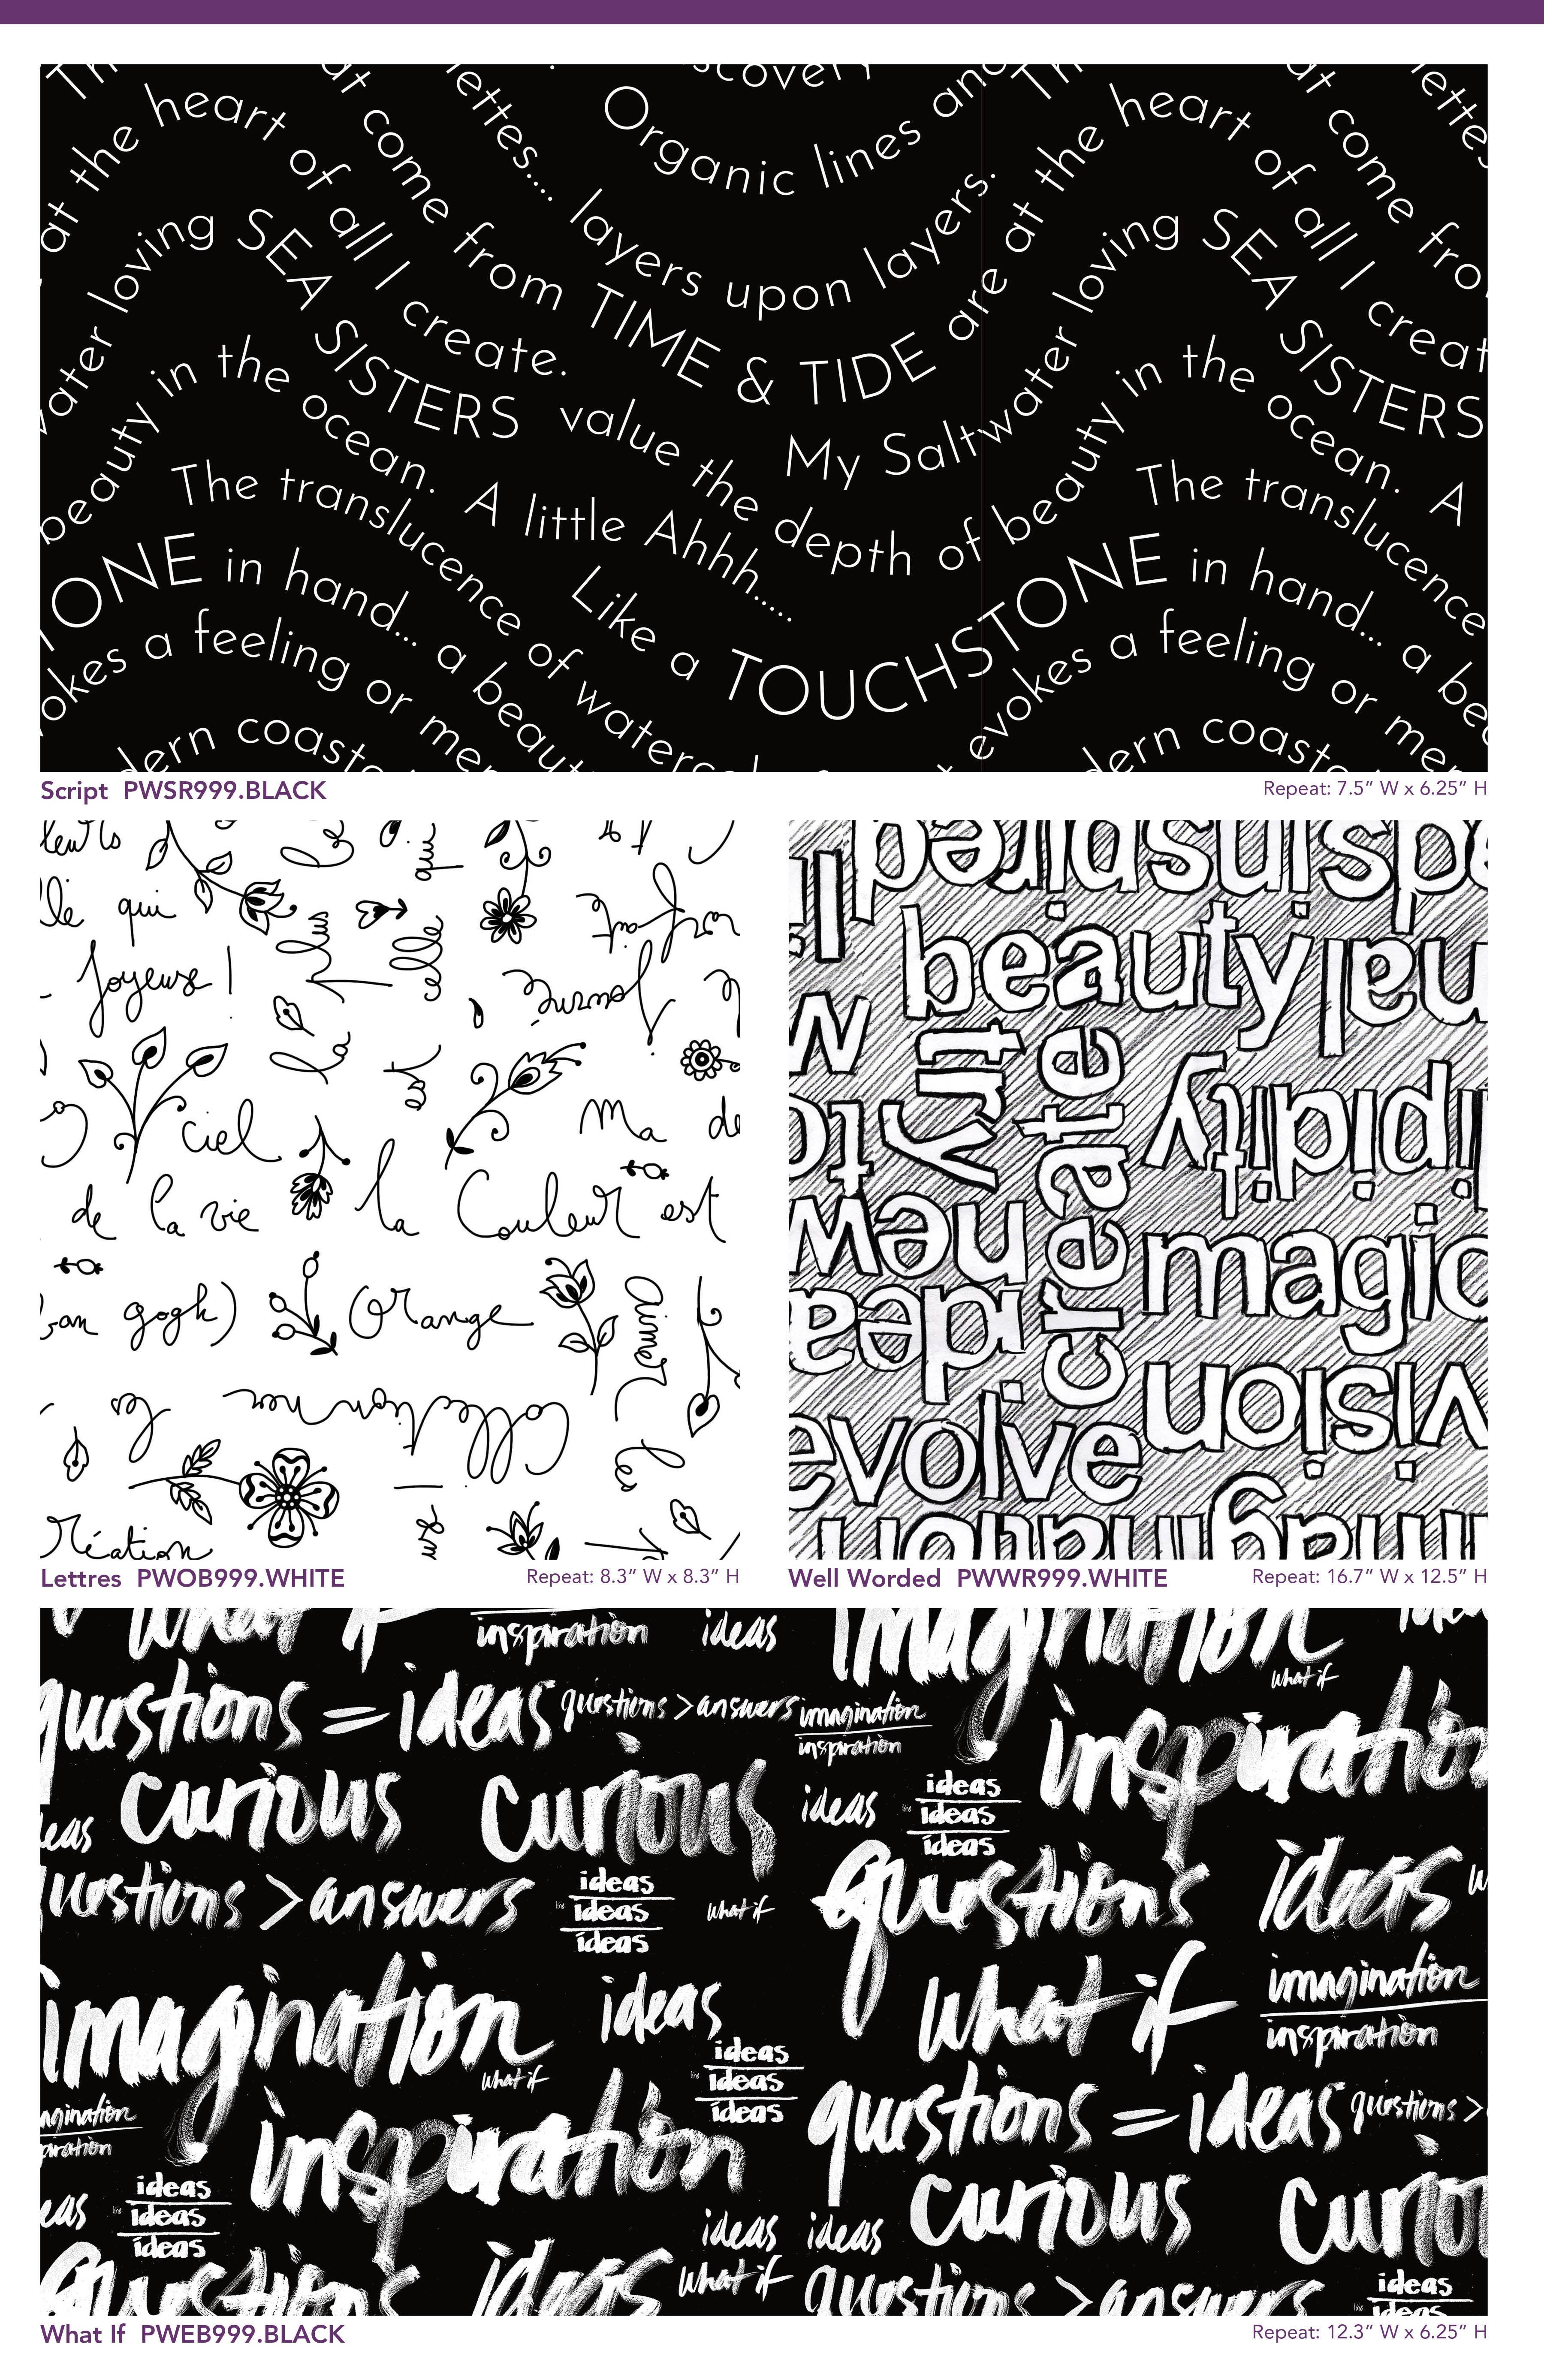 scovery
Organic lines and
at the heart of all I create.
at come from TIME & TIDE are at the heart of all I creat
lettes.... layers upon layers.
come fro
lettes
water loving SEA SISTERS value the depth of beauty in the ocean. A
My Saltwater loving SEA SISTERS
beauty in the ocean. A little Ahhh.....
The translucence of waterc
Like a TOUCHSTONE in hand... a be
The translucence
TONE in hand... a beaut
okes a feeling or mem
evokes a feeling or mem
dern coasta
dern coasta
Script PWSR999.BLACK
Repeat: 7.5” W x 6.25” H
qui
lé qui
plus
celle
parfait
Joyeuse !
journée
la
est
Ciel
Ma de
de la vie la Couleur est
van gogh) Orange
aimer
Collection
la
réation
Lettres PWOB999.WHITE
Repeat: 8.3” W x 8.3” H
inspired
beauty
try
create
new
idea
magic
vision
evolve
Well Worded PWWR999.WHITE
Repeat: 16.7” W x 12.5” H
what if
inspiration
ideas
imagination
what if
questions = ideas
questions > answers
imagination
inspiration
inspiration
curious
curious
ideas
ideas
ideas
ideas
eas
questions > answers
ideas
ideas
ideas
what if
questions
ideas
imagination
what if
ideas
what if
imagination
inspiration
ideas
ideas
ideas
agination
piration
inspiration
questions = ideas
questions >
ideas
ideas
ideas
eas
ideas
ideas
curious
curio
questions
ideas
what if
questions > answers
ideas
ideas
What If PWEB999.BLACK
Repeat: 12.3” W x 6.25” H